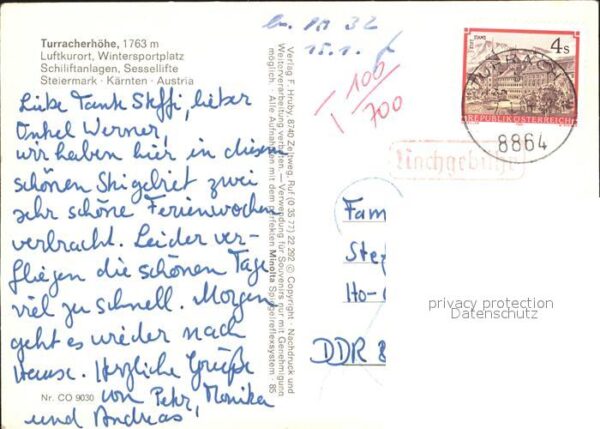 Turracherhöhe, 1763 m
Luftkurort, Wintersportplatz
Schiliftanlagen, Sessellifte
Steiermark · Kärnten · Austria
Liebe Tante Steffi, lieber
Onkel Werner,
wir haben hier in diesem
schönen Skigebiet zwei
sehr schöne Ferienwochen
verbracht. Leider ver-
fliegen die schönen Tage
viel zu schnell. Morgen
geht es wieder nach
Hause. Herzliche Grüße
von Petr, Monika
und Andreas,
Nr. CO 9030
Verlag F. Hruby, 8740 Zeltweg, Ruf (0 35 77) 22 292 © Copyright · Nachdruck und
Weiterverarbeitung verboten. — Verwendung für Souvenirs nur mit Genehmigung
möglich. · Alle Aufnahmen mit dem perfekten Minolta Spiegelreflexsystem · 85
PM 32
15.1.
T 100
700
STAMS
4 S
REPUBLIK ÖSTERREICH
TURRACH
8864
Nachgebühr
Fam
Step
Ho-
DDR 8
privacy protection
Datenschutz